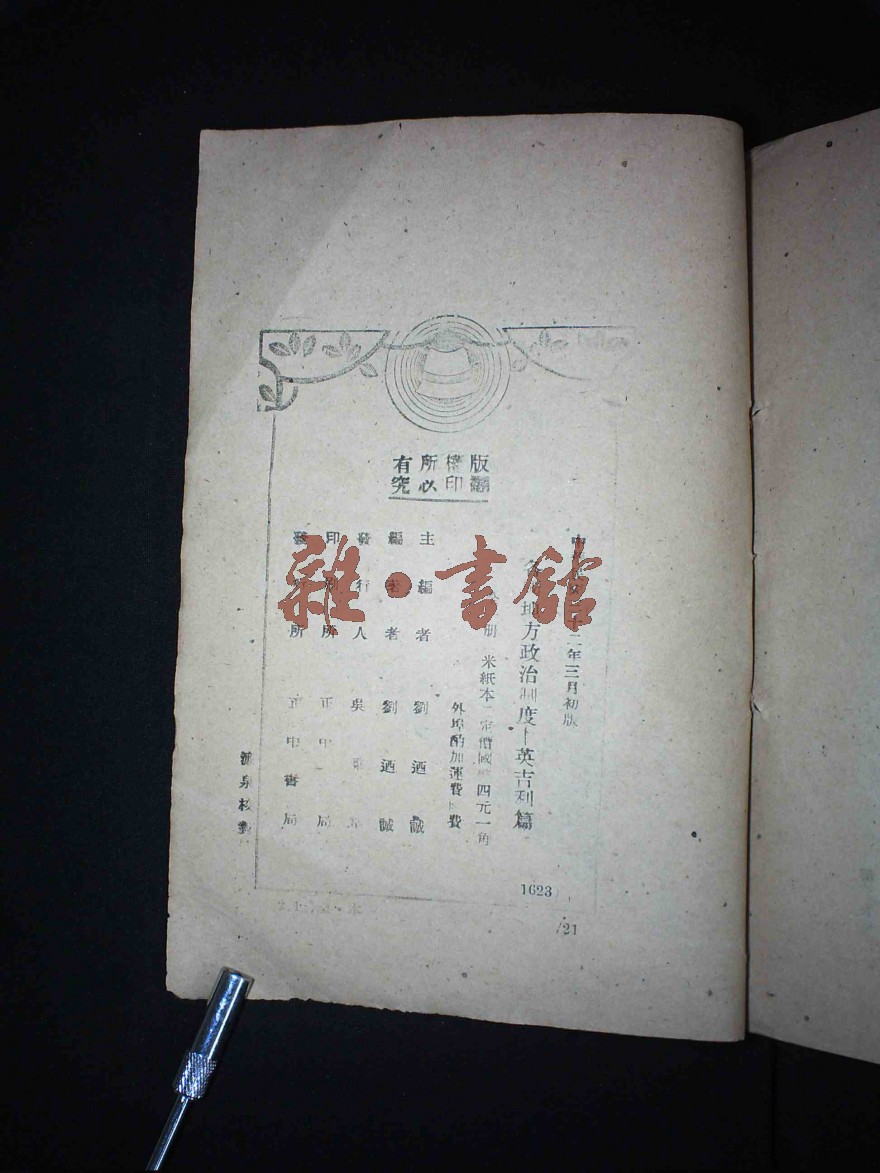 版權所有
翻印必究
中 二年三月初版
各 地方政治制度—英吉利篇
册 米紙本 定價國 四元一角
外埠酌加運費 費
主編者 劉迺誠
編著者 劉迺誠
發行人 吳
印 所 正中 局
發 所 正中書局
校對
1623
/21
雜·書館